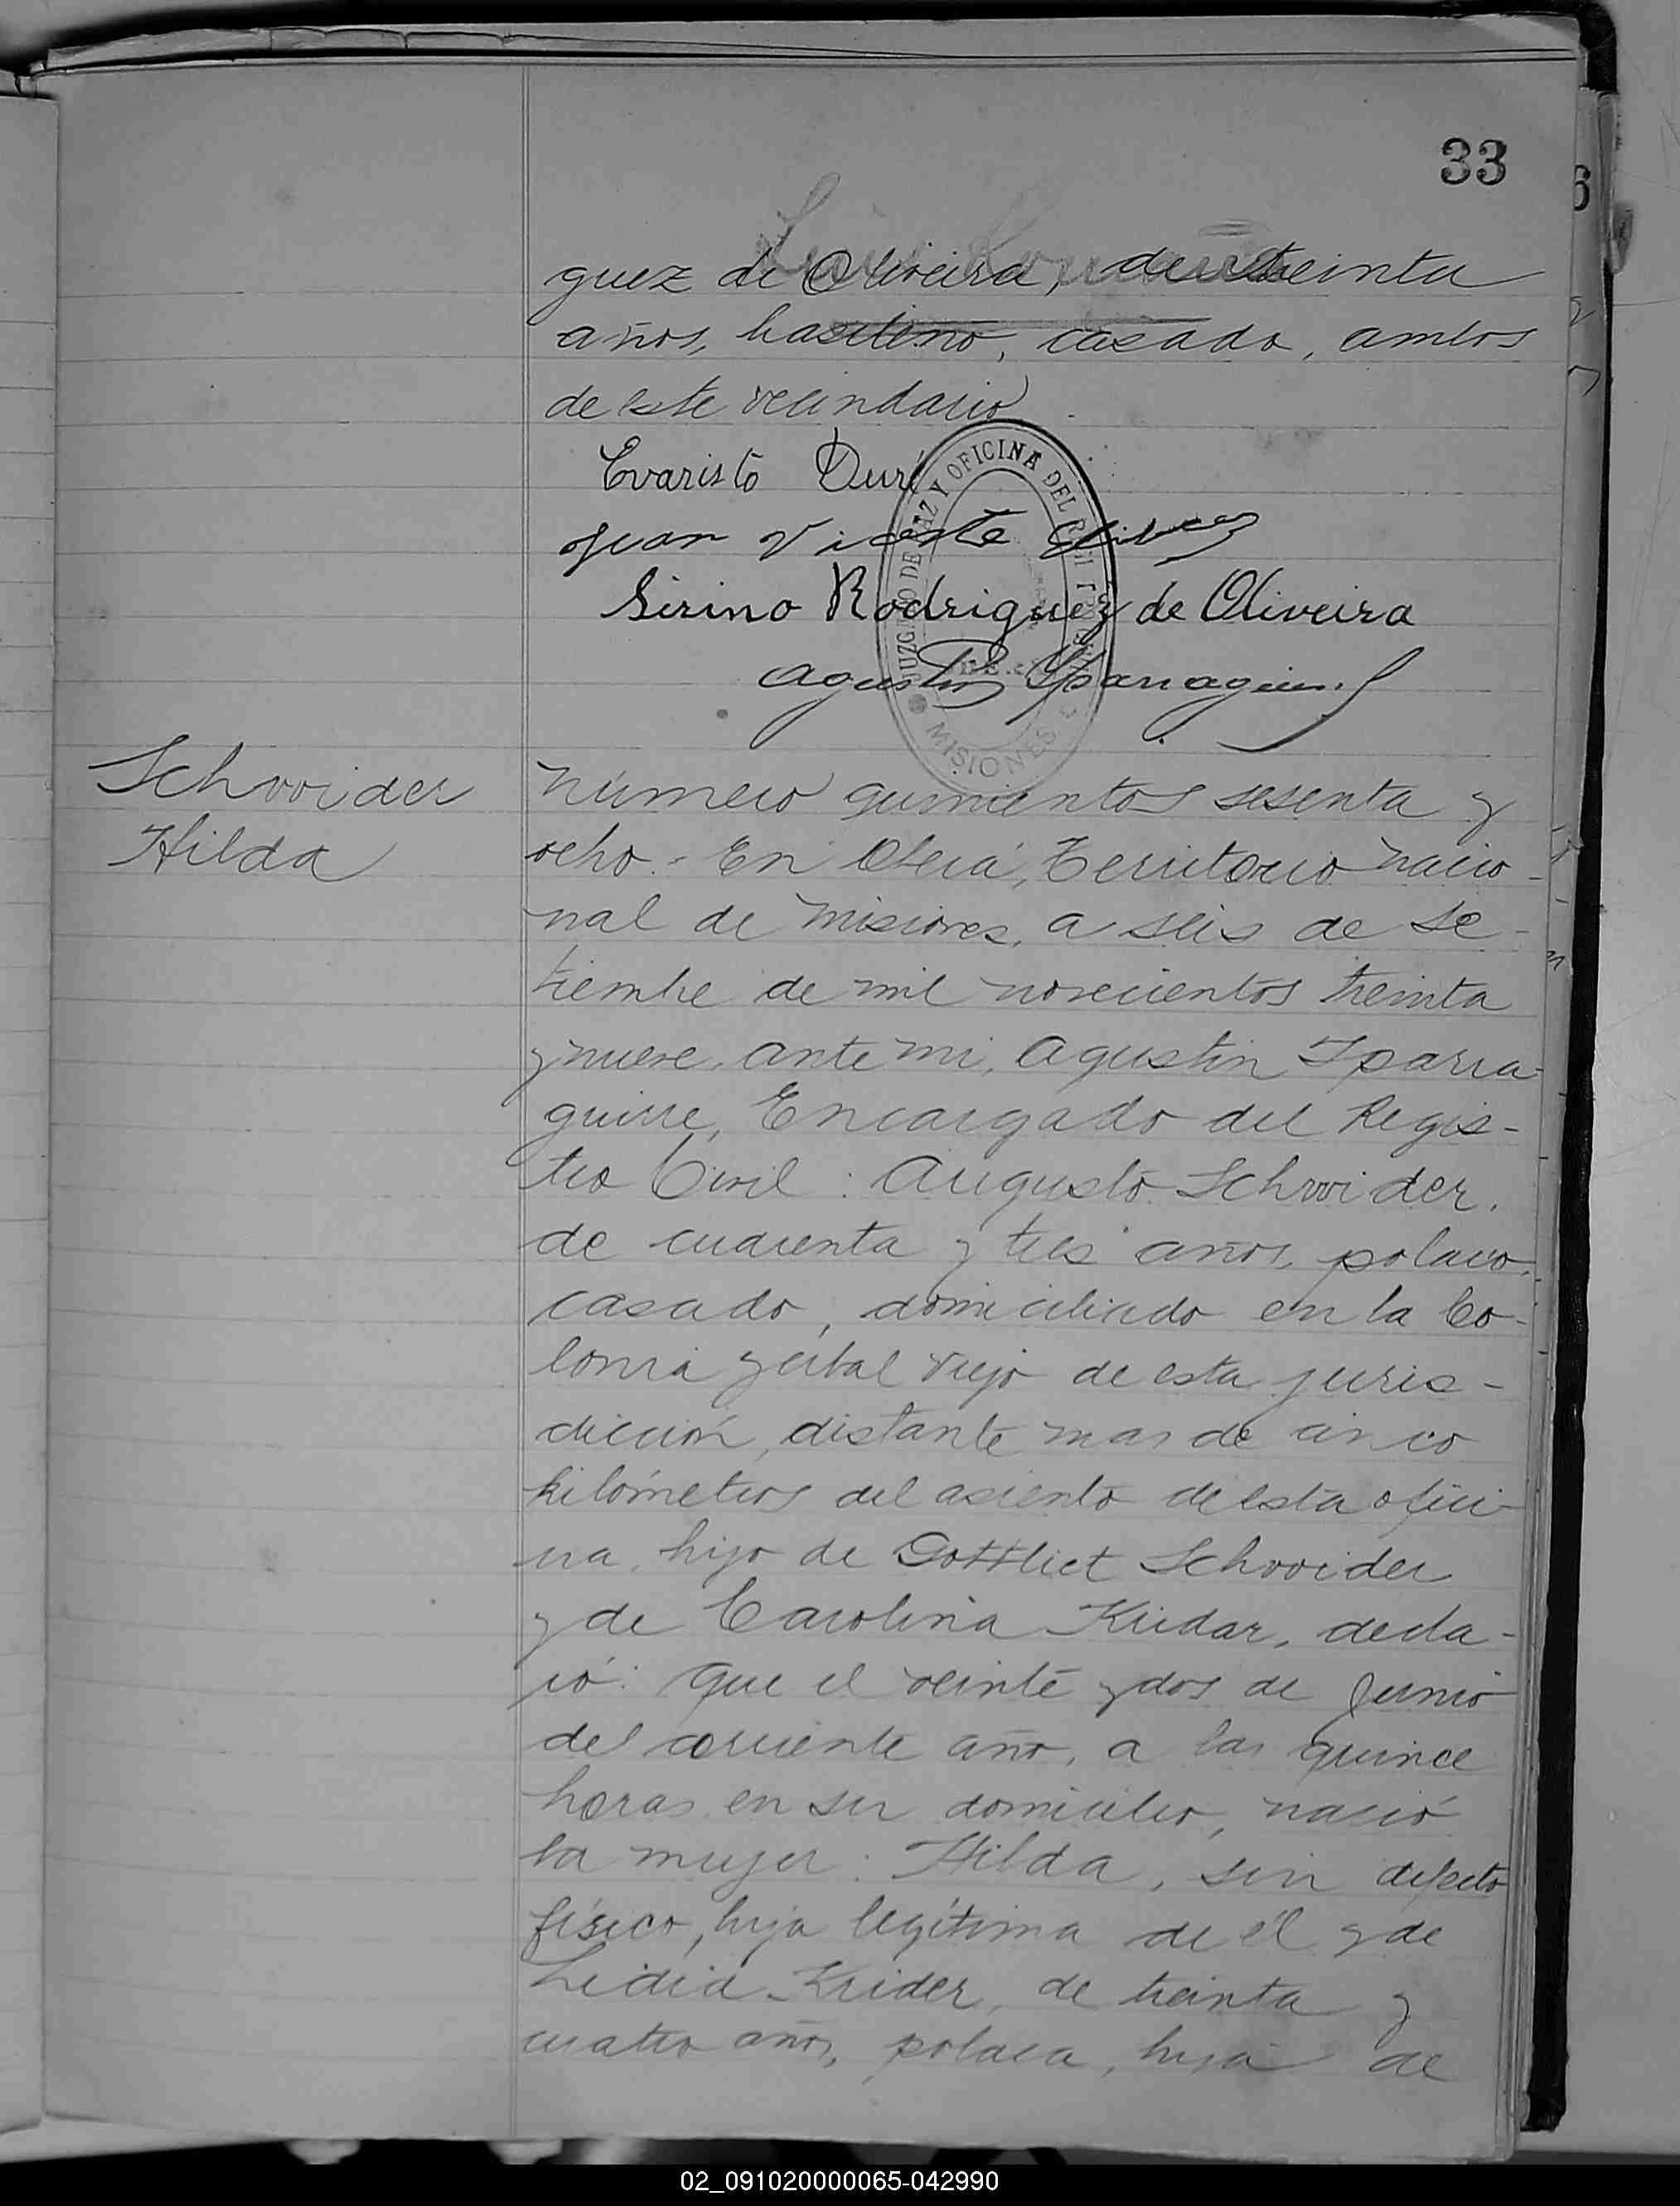 33
guez de Oliveira, de treinta
años, brasileno, casado, ambos
de este vecindario
Evaristo Duré
Juan Vicente
JUZGADO DE PAZ Y OFICINA DEL REGISTRO CIVIL
MISIONES
Sirino Rodriguez de Oliveira
Agustin Yparraguirre
Schvoider
Hilda
Número quinientos sesenta y
ocho. - En Oberá, Territorio Nacio-
nal de Misiones, a seis de Se-
tiembre de mil novecientos treinta
y nueve, ante mi, Agustin Yparra-
guirre, Encargado del Regis-
tro Civil: Augusto Schvoider,
de cuarenta y tres años, polaco,
casado, domiciliado en la Co-
lonia Yerbal Viejo de esta juris-
dicción, distante mas de cinco
kilómetros del asiento de esta ofici-
na, hijo de Gottliet Schvoider
y de Carolina Kridar, decla-
ró: Que el veinte y dos de Junio
del corriente año, a las quince
horas en su domicilio, nació
la mujer: Hilda, sin defecto
físico, hija legítima de él y de
Lidia Krider, de treinta y
cuatro años, polaca, hija de
02_091020000065-042990